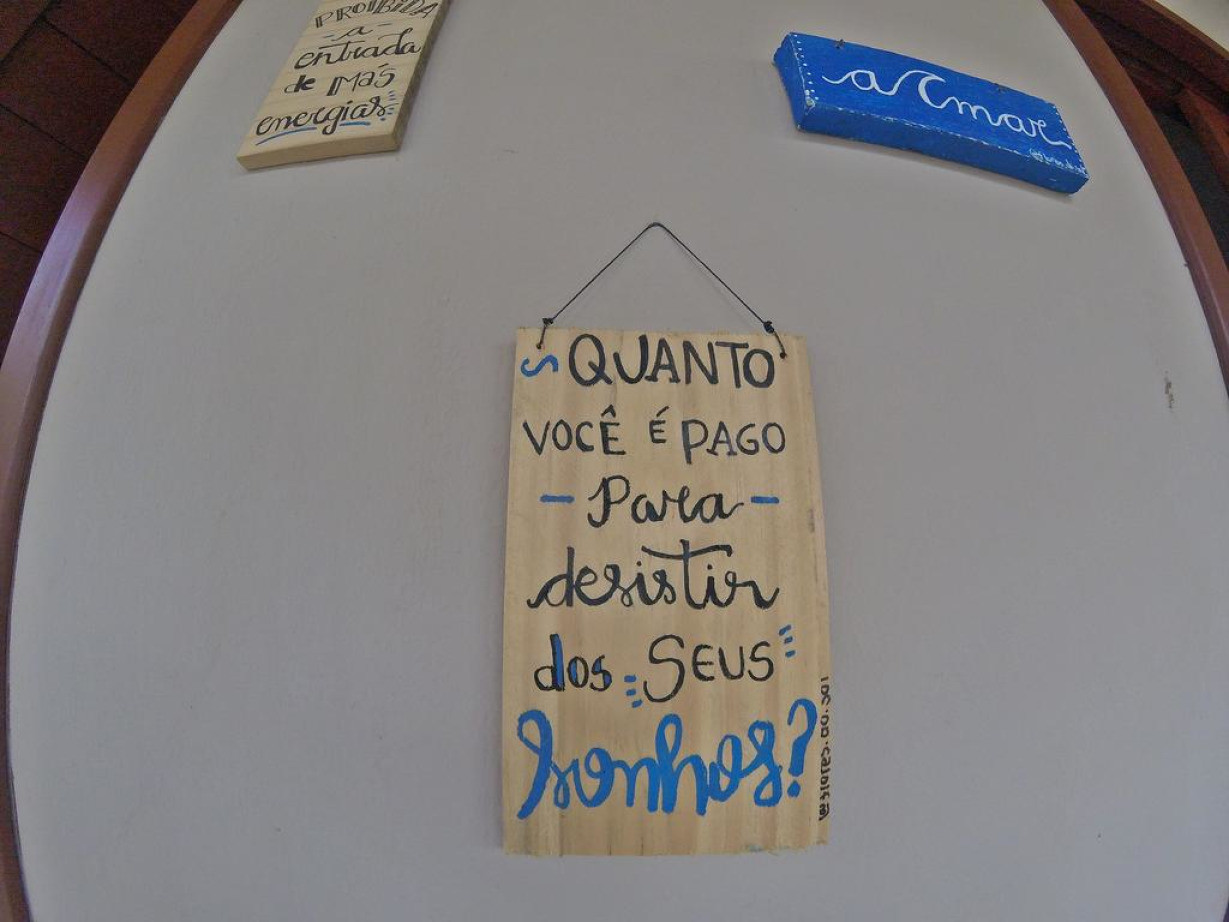 PROIBIDA
a
entrada
de Más
energias
a mar
QUANTO
VOCÊ É PAGO
Para
desistir
dos SEUS
Sonhos?